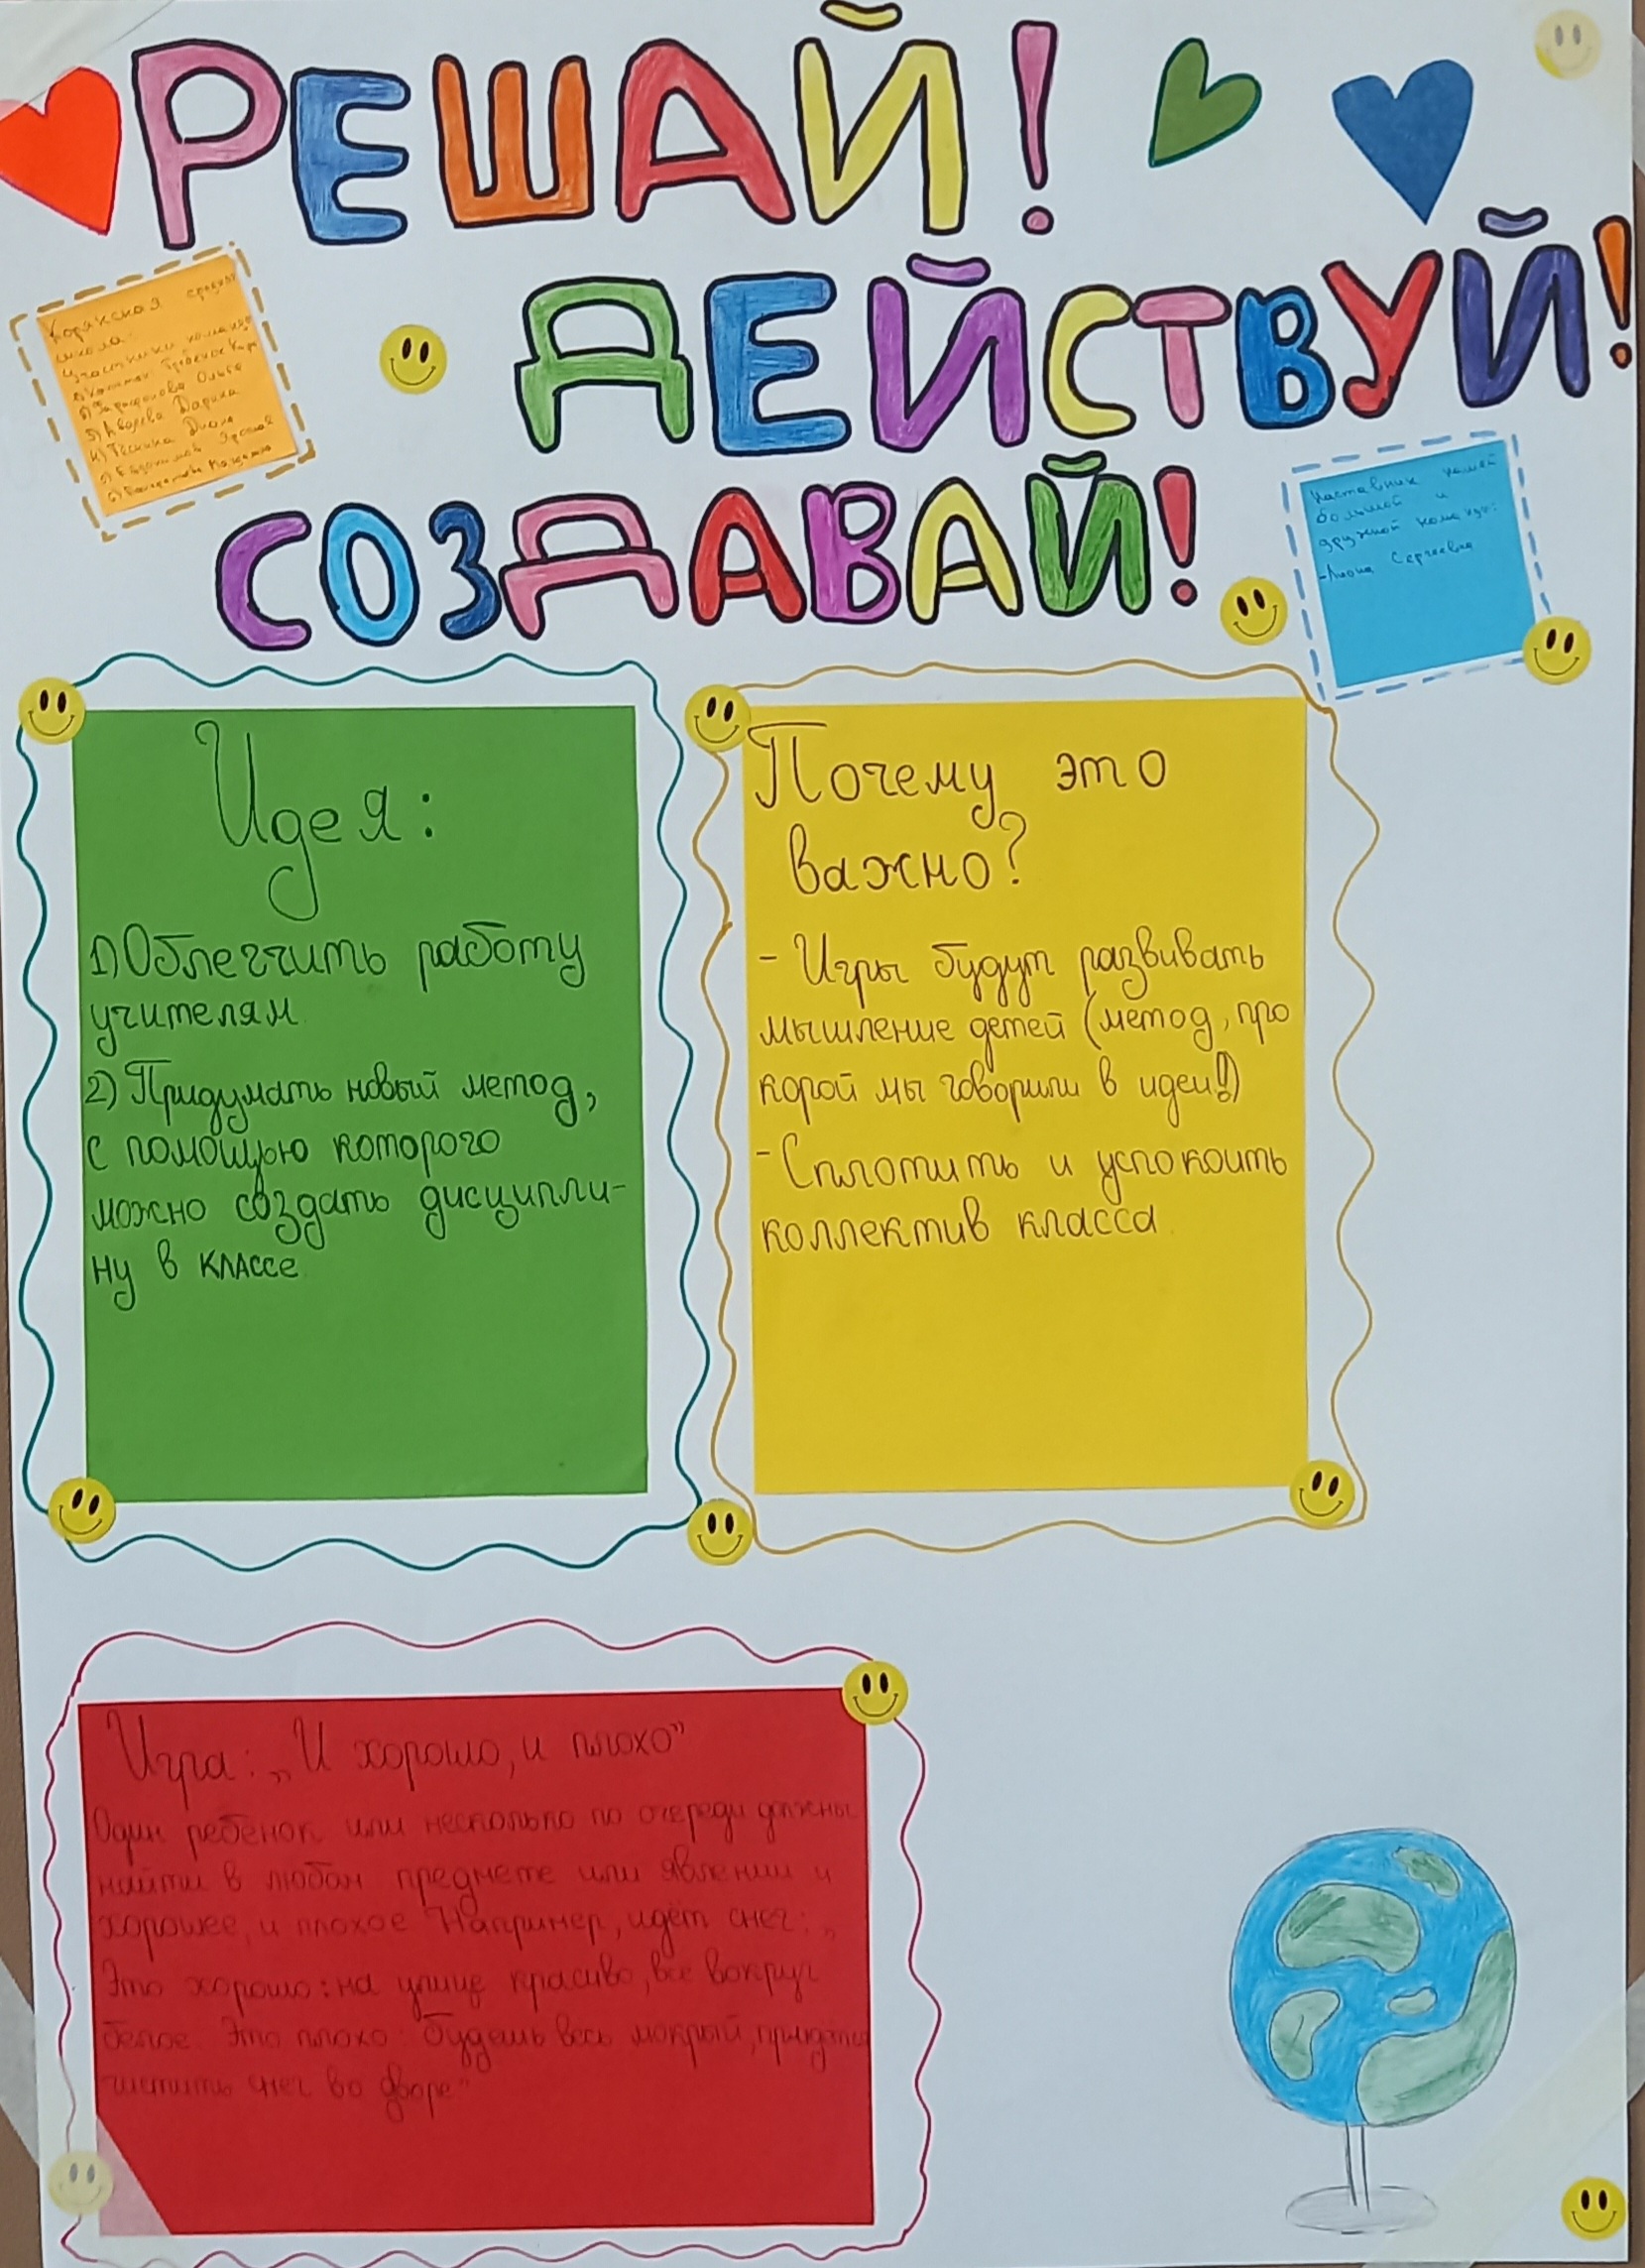 РЕШАЙ!
ДЕЙСТВУЙ!
СОЗДАВАЙ!
Корякская средняя
школа:
Участники команды
Ольга
3) Авдеева Дарина
4) Тёскина Диана
Наставник нашей
большой и
дружной команды:
Сергеевна
Идея:
1) Облегчить работу
учителям
2) Придумать новый метод,
с помощью которого
можно создать дисципли-
ну в классе
Почему это
важно?
- Игры будут развивать
мышление детей (метод, про
корой мы говорили в идеи!)
- Сплотить и успокоить
коллектив класса
Игра: „И хорошо, и плохо"
Один ребенок или несколько по очереди должны
найти в любом предмете или явлении и
хорошее, и плохое Например, идёт снег: „
Это хорошо: на улице красиво, все вокруг
белое. Это плохо: будешь весь мокрый, придётся
чистить снег во дворе"